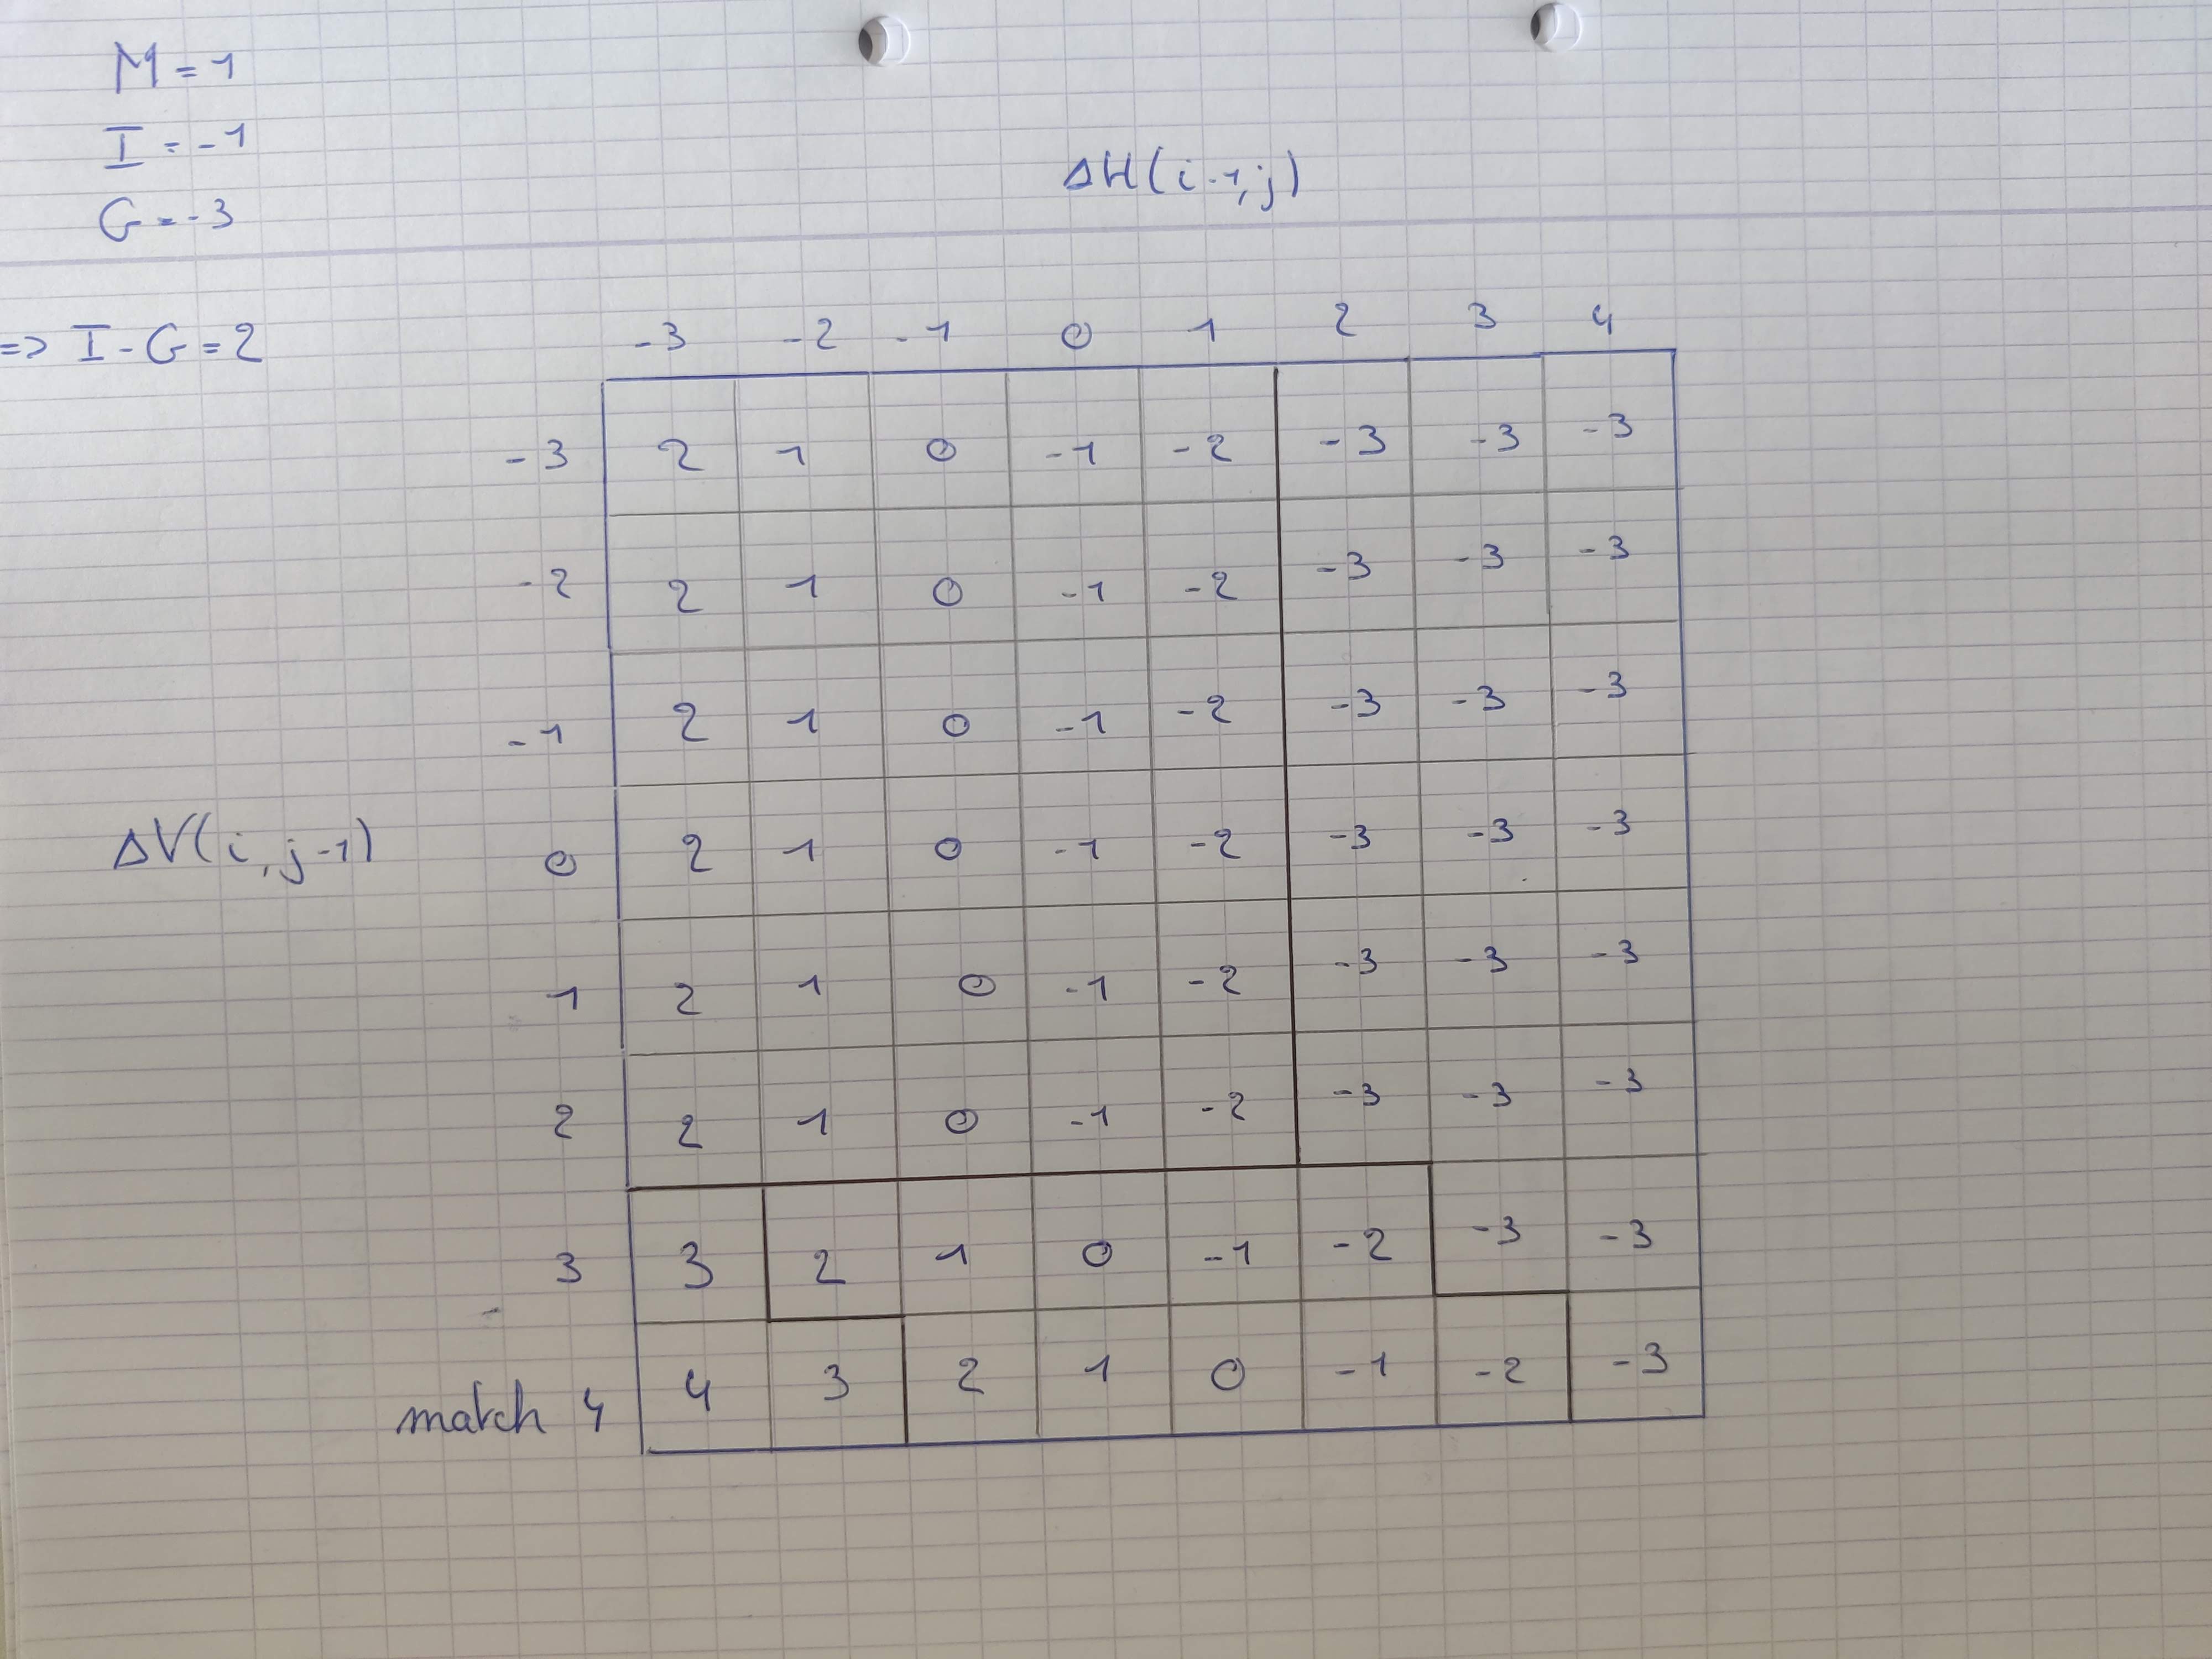 M = 1
I = -1
G = -3
ΔH(i-1,j)
=> I - G = 2
-3 -2 -1 0 1 2 3 4
-3 2 1 0 -1 -2 -3 -3 -3
-2 2 1 0 -1 -2 -3 -3 -3
-1 2 1 0 -1 -2 -3 -3 -3
ΔV(i,j-1) 0 2 1 0 -1 -2 -3 -3 -3
1 2 1 0 -1 -2 -3 -3 -3
2 2 1 0 -1 -2 -3 -3 -3
3 3 2 1 0 -1 -2 -3 -3
match 4 4 3 2 1 0 -1 -2 -3